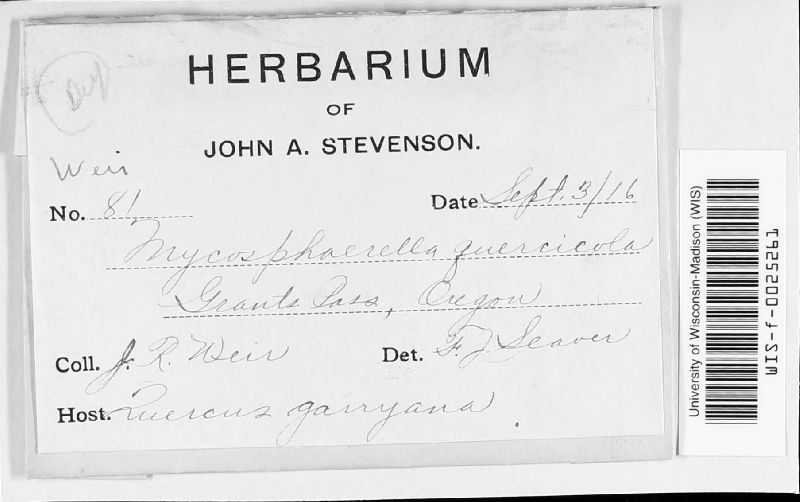 Dup
HERBARIUM
OF
JOHN A. STEVENSON.
Weir
No. 81
Date Sept. 3/16
Mycosphaerella quercicola
Grants Pass, Oregon
Coll. J. R. Weir
Det. F. J. Seaver
Host. Quercus garryana
University of Wisconsin-Madison (WIS)
WIS-f-0025261